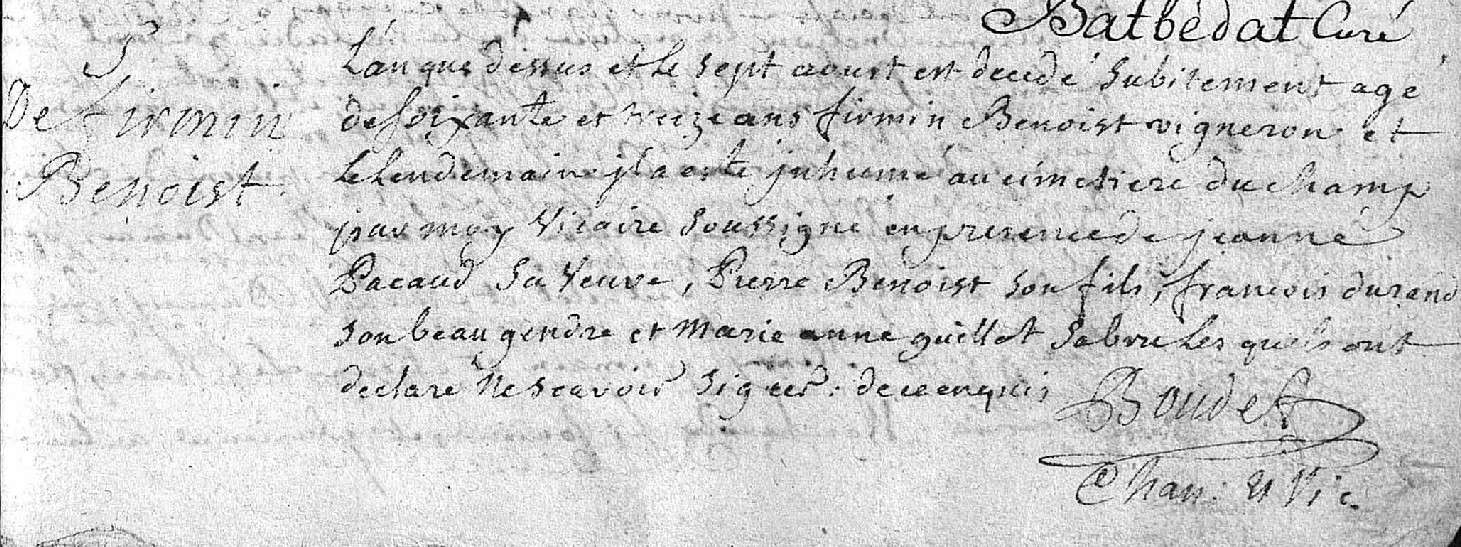 Batbedat Curé
S
De firmin
Benoist
L'an que dessus et le sept aoust est decedé subitement agé
de soixante et treize ans firmin Benoist vigneron et
le lendemain jl a esté jnhumé au cimetiere du champ
par moy vicaire soussigné en presence de jeanne
Pacaud sa veuve, Pierre Benoist son fils, francois durand
son beau gendre et marie anne guillot sa bru les quels ont
declare ne scavoir signer. de ce enquis
Boudet
Chan: et Vic.